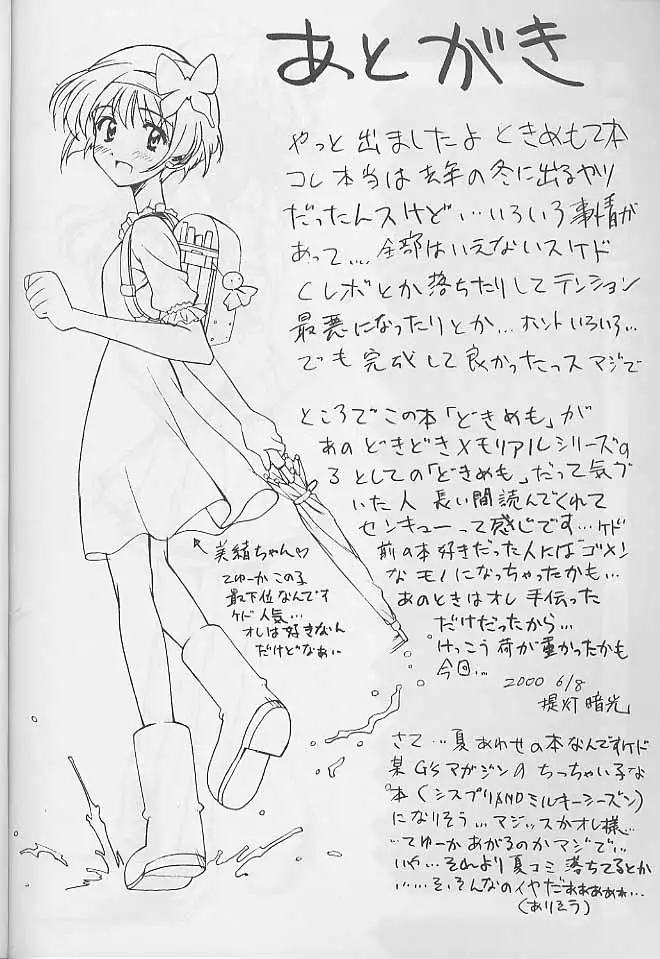 あとがき
やっと出ましたよ ときめもて本
コレ本当は去年の冬に出るやり
だったんスけど…いろいろ事情が
あって…、全部はいえないスケド
Cレボとか落ちたりしてテンション
最悪になったりとか…ホントいろいろ…
でも完成して良かったっスマジで
ところでこの本「どきめも」が
あのどきどきメモリアルシリーズの
3としての「どきめも」だって気づ
いた人 長い間読んでくれて
センキューって感じです…ケド
前の本好きだった人には"ゴメン"
なモノになっちゃったかも…
あのときはオレ手伝った
だけだったから…
けっこう荷が重かったかも
今回…
2000 6/8
提灯暗光
←美緒ちゃん♡
てゆーかこの子
最下位なんです
ケド人気…
オレは好きなん
だけどなぁ…
さて…夏あわせの本なんですケド
某G'sマガジンのちっちゃい子な
本(シスプリANDミルキーシーズン)
になりそう…マジッスかオレ様…
…てゆーかあがるのかマジで…
いや…それより夏コミ落ちてるとか
……そ、そんなのイヤだぁぁぁぁぁ…
(ありそう)